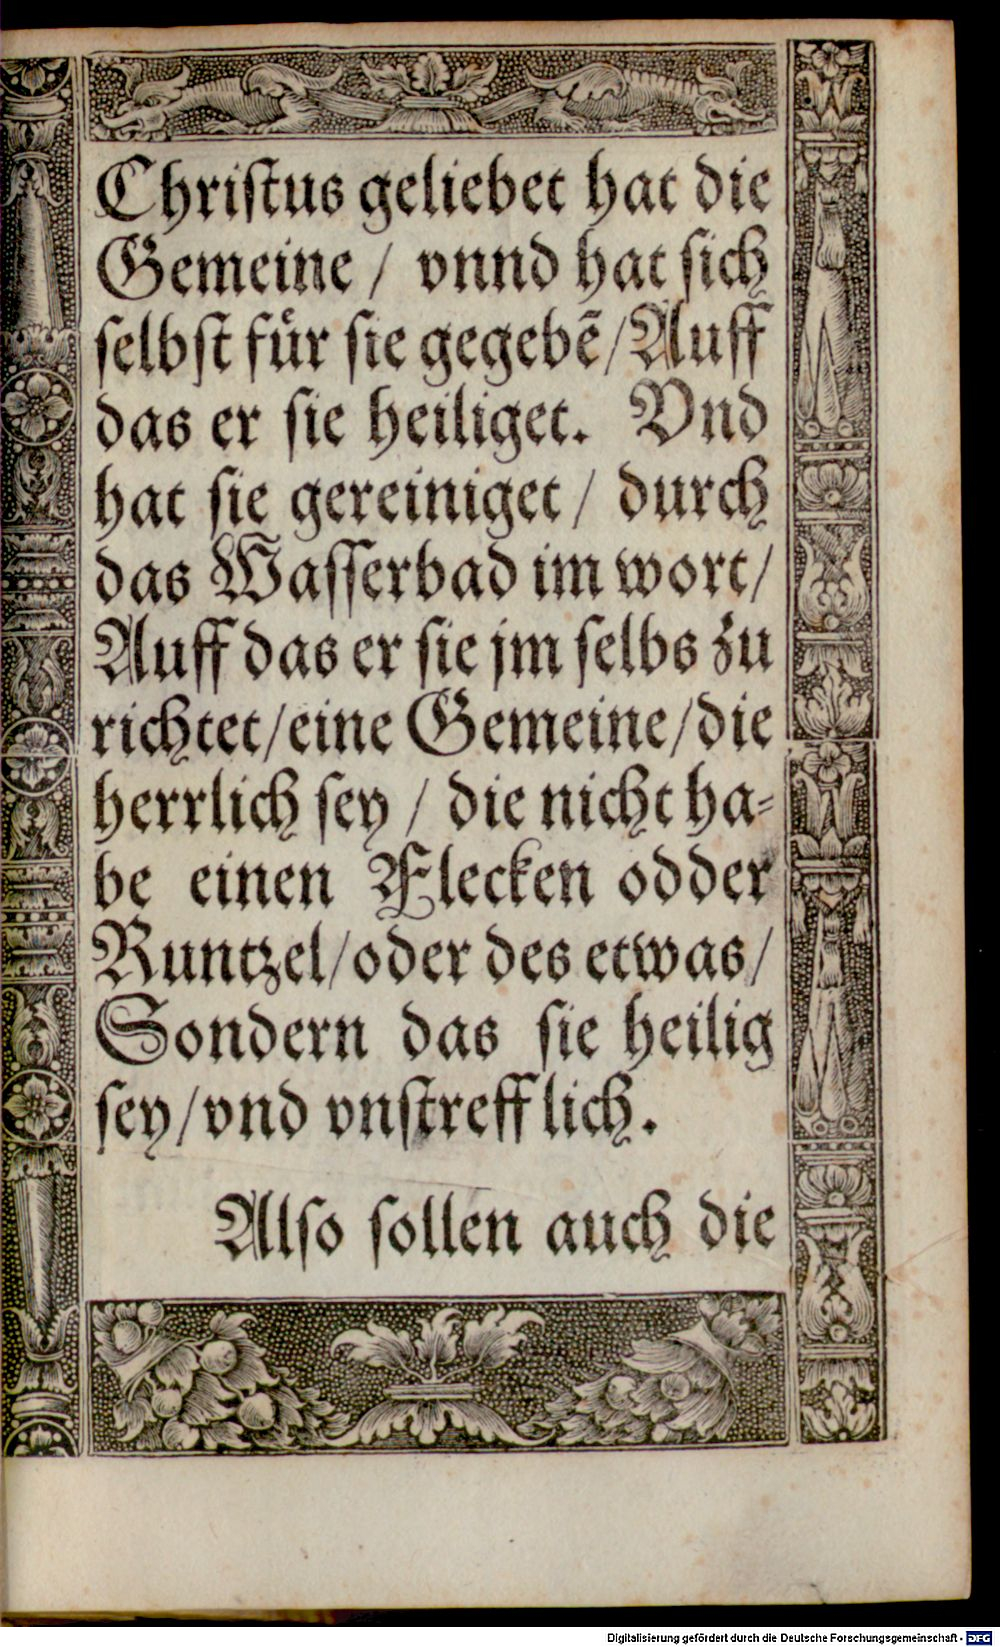 Chriſtus geliebet hat die
Gemeine / vnnd hat ſich
ſelbſt fuͤr ſie gegebē/Auff
das er ſie heiliget. Vnd
hat ſie gereiniget / durch
das Waſſerbad im wort/
Auff das er ſie jm ſelbs zu
richtet/eine Gemeine/die
herrlich ſey / die nicht ha⸗
be einen Flecken odder
Runtzel/oder des etwas/
Sondern das ſie heilig
ſey/vnd vnſtrefflich.
Alſo ſollen auch die
Digitalisierung gefördert durch die Deutsche Forschungsgemeinschaft - DFG